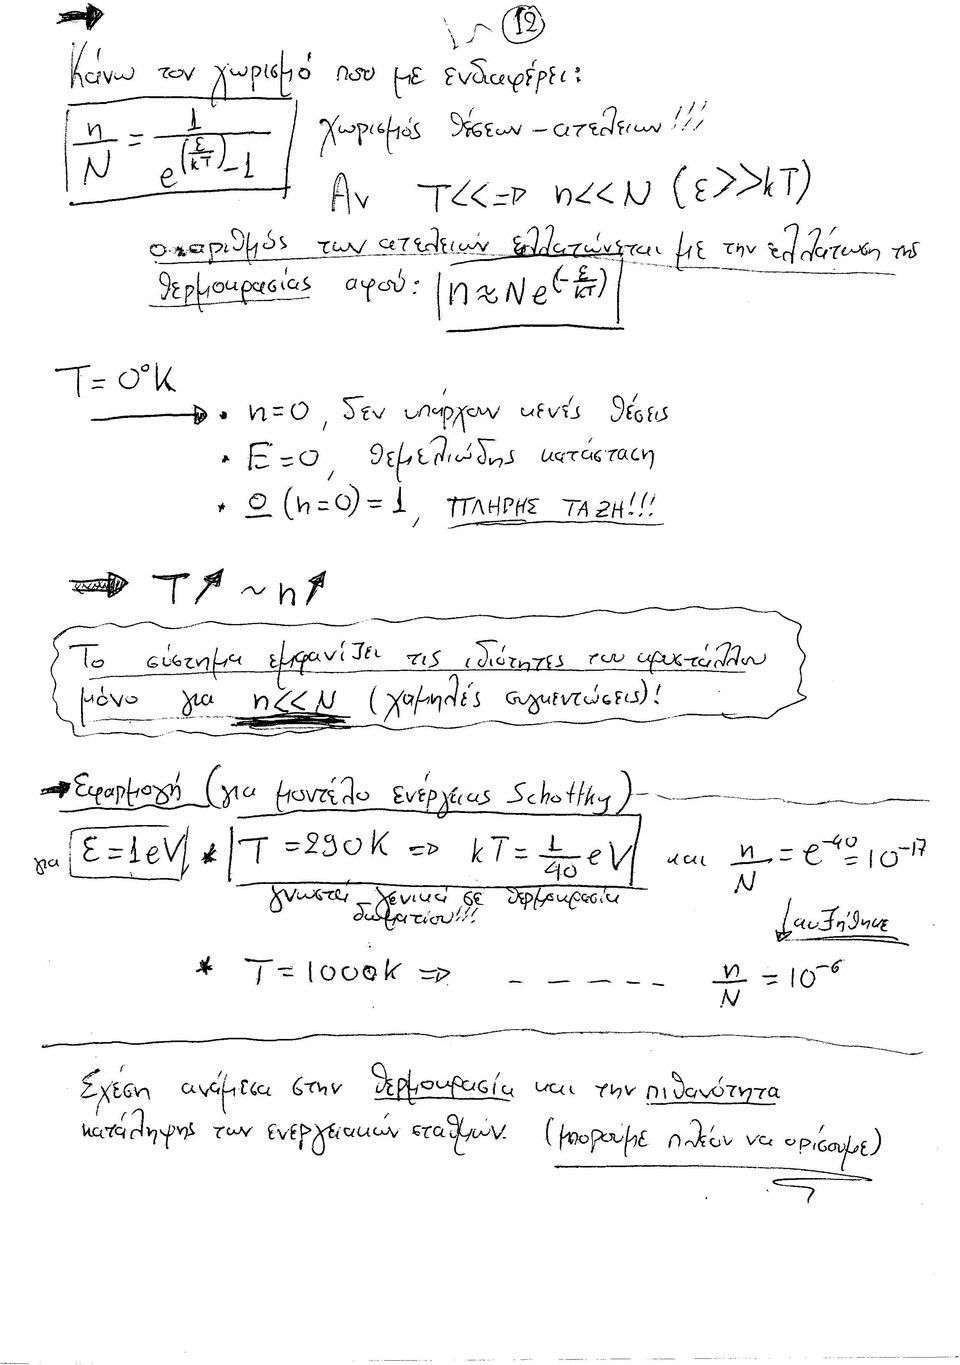 12
Κάνω τον χωρισμό που με ενδιαφέρει:
n/N = 1/(e^(ε/kT) - 1) χωρισμός θέσεων - ατελειων!!!
Αν T<<=> n<<N (ε>>kT)
ο αριθμός των ατελειών ελλατώνεται με την ελλάτωση της
θερμοκρασίας αφού: n≈Ne^(-ε/kT)
T=0°K
• n=0, δεν υπάρχουν κενές θέσεις
• E=0, θεμελιώδης κατάσταση
• Ω(n=0)=1, ΠΛΗΡΗΣ ΤΑΞΗ!!!
⇒ T↗ ~ n↗
Το σύστημα εμφανίζει τις ιδιότητες του κρυστάλλου
μόνο για n<<N (χαμηλές συγκεντώσεις)!
→ Εφαρμογή (για μοντέλο ενέργειας Schottky)
για ε=1eV * T=290K => kT=1/40 eV και n/N = e^-40 = 10^-17
γνωστό γενικά σε θερμοκρασία
δωματίου!!!
↓ αυξήθηκε
* T=1000K => - - - - - n/N = 10^-6
Σχέση ανάμεσα στην θερμοκρασία και την πιθανότητα
κατάληψης των ενεργειακών σταθμών. (μπορούμε πλέον να ορίσουμε)